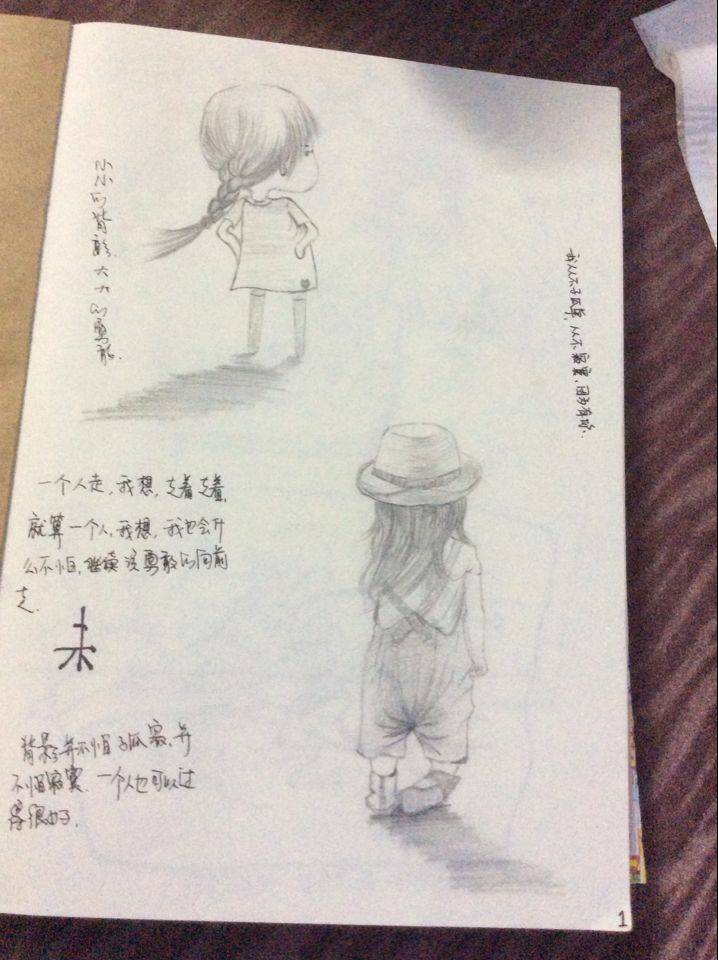 小小的背影,大大的勇敢.
我从不孤单,从不寂寞,因为有你.
一个人走,我想,走着走着,
就算一个人,我想,我也会什
么不怕,继续 勇敢的向前
走.
未
背影并不怕孤寂,并
不怕寂寞.一个人也可以过
得很好.
1